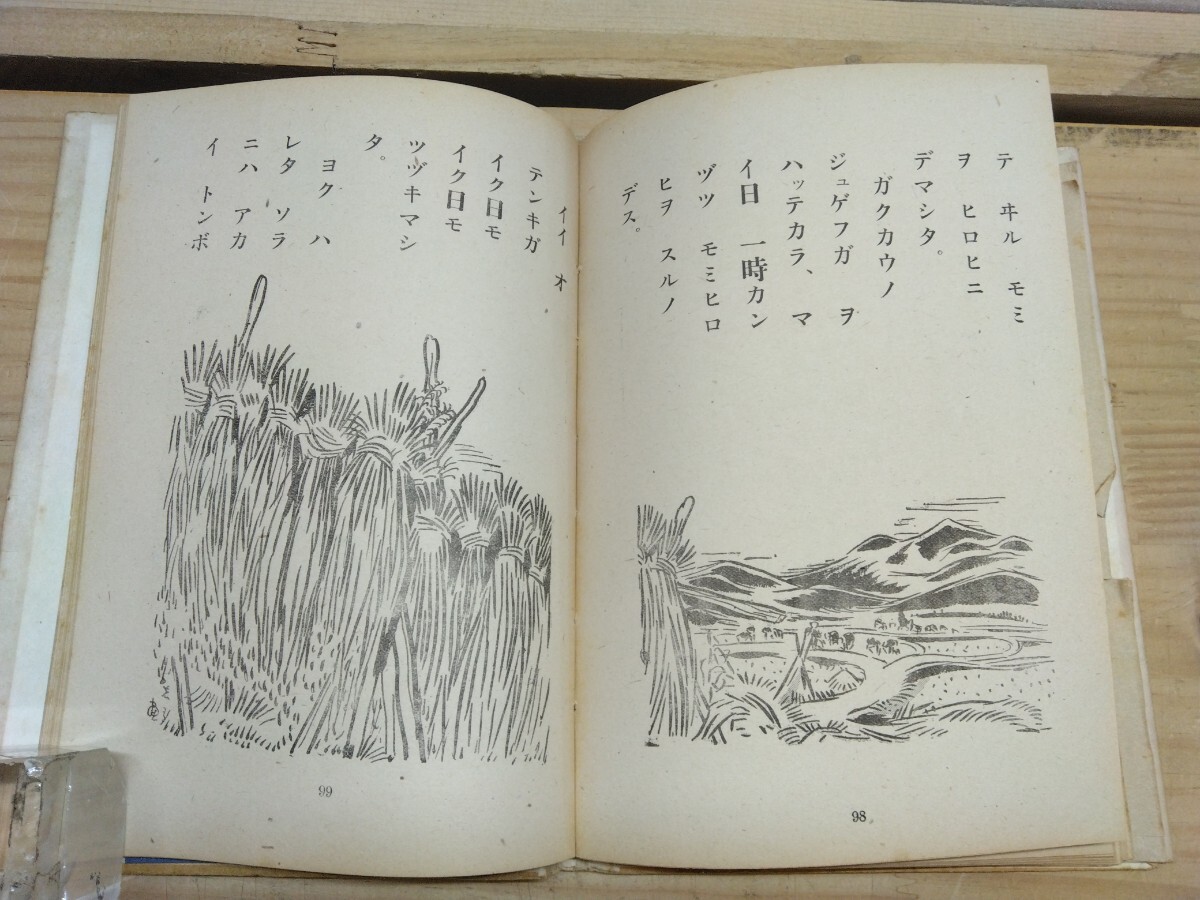 テ ヰル モミ
ヲ ヒロヒニ
デマシタ。
ガクカウノ
ジュゲフガ ヲ
ハッテカラ、マ
イ日 一時カン
ヅツ モミヒロ
ヒヲ スルノ
デス。
98
イイ オ
テンキガ
イク日モ
イク日モ
ツヅキマシ
タ。
ヨク ハ
レタ ソラ
ニハ アカ
イ トンボ
99